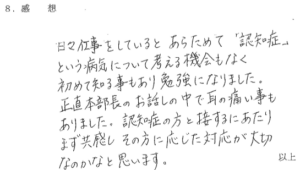 8. 感 想
日々仕事をしていると あらためて「認知症」
という病気について考える機会もなく
初めて知る事もあり勉強になりました。
正直本部長のお話しの中で耳の痛い事も
ありました。認知症の方と接するにあたり
まず共感し その方に応じた対応が大切
なのかなと思います。
以上